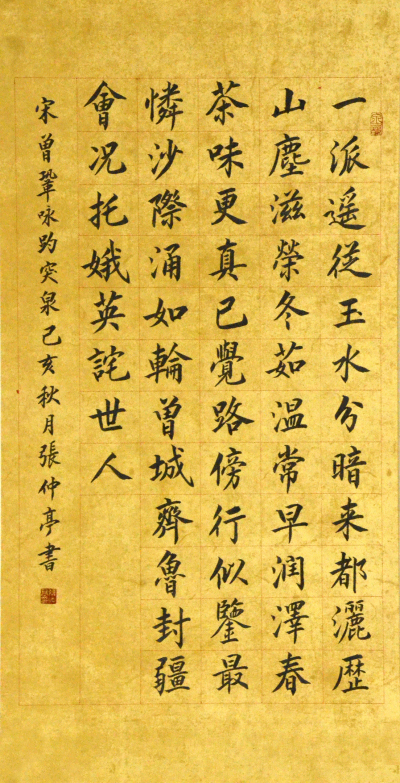 一派遥從玉水分暗来都灑歴
山塵滋榮冬茹温常早润澤春
茶味更真已覺路傍行似鑒最
憐沙際涌如輪曾城齊魯封疆
會况托娥英詫世人
宋曾鞏咏趵突泉己亥秋月張仲亭書